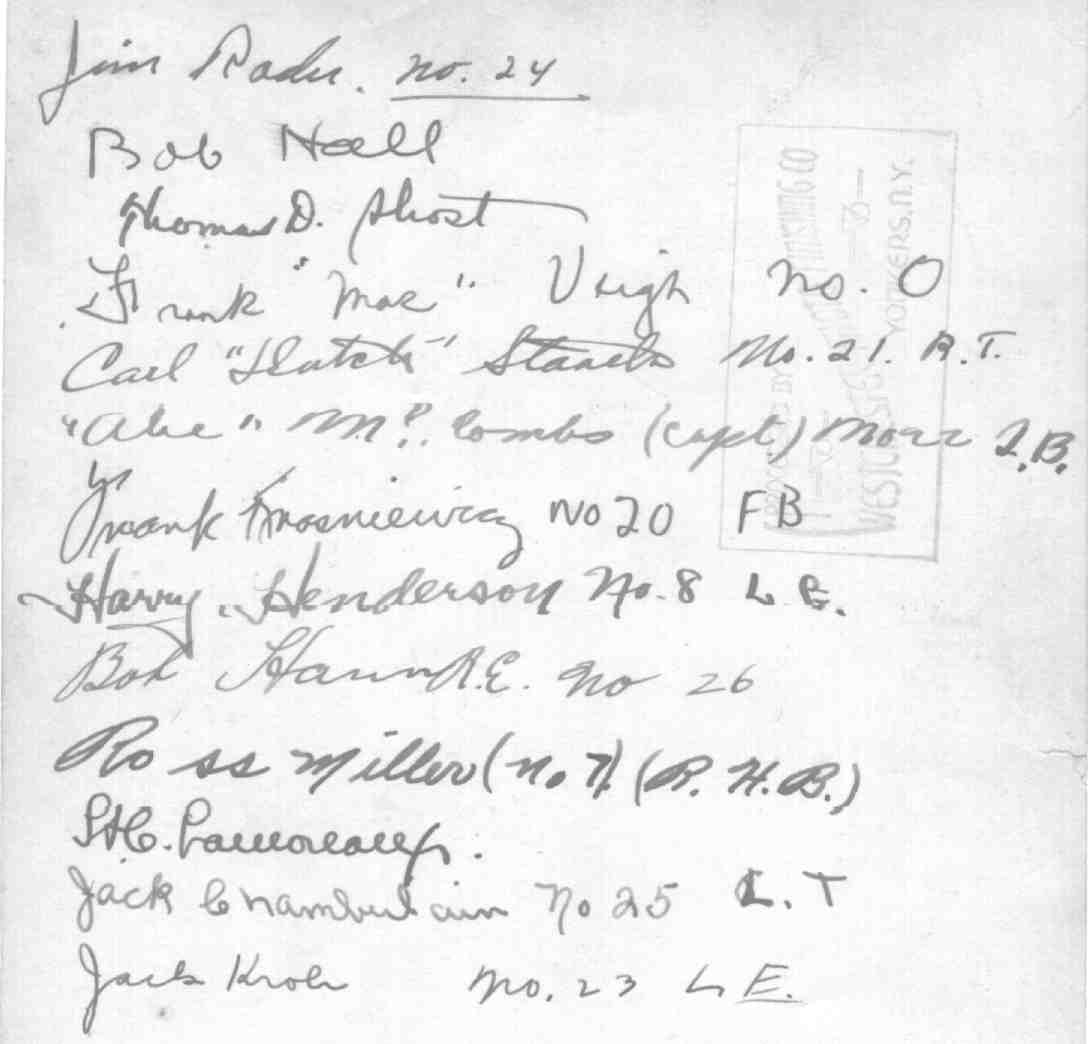 Jim Rader. no. 24
Bob Hall
Thomas D. Shost
Frank "Mac" Veigh no. 0
Carl "Dutch" No. 21. R.T.
"Abe" combs (capt.)
Frank Krosniewicz No 20 FB
Harvey Henderson No. 8 L.E.
Bob Hann R.E. No 26
Ross Miller (No 7) (R.H.B.)
Jack Chamberlain No 25 L.T
Jack Kroh No. 23 L E.
WESTCHESTER YONKERS, N.Y.